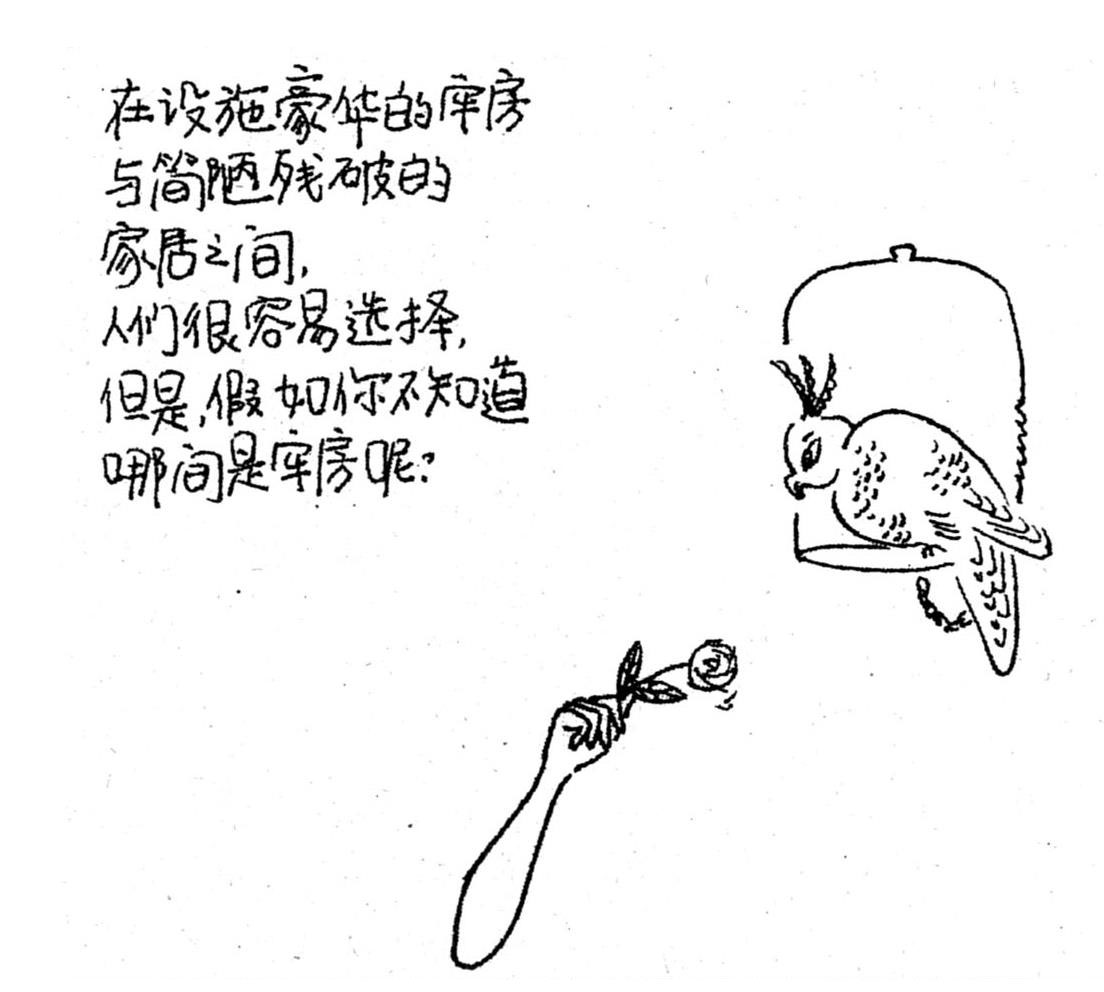 在设施豪华的牢房
与简陋残破的
家居之间,
人们很容易选择,
但是,假如你不知道
哪间是牢房呢?